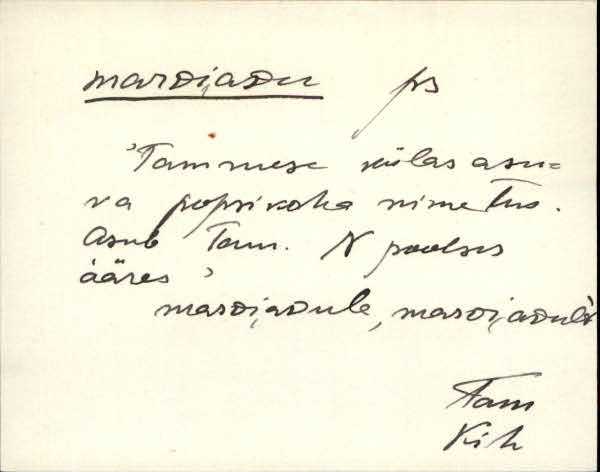 mardi,adu ps
'Tammese külas asu=
va popsikoha nimetus.
Asub Tam. N poolses
ääres'
mardi,adule, mardi,adult
Tam
Kih